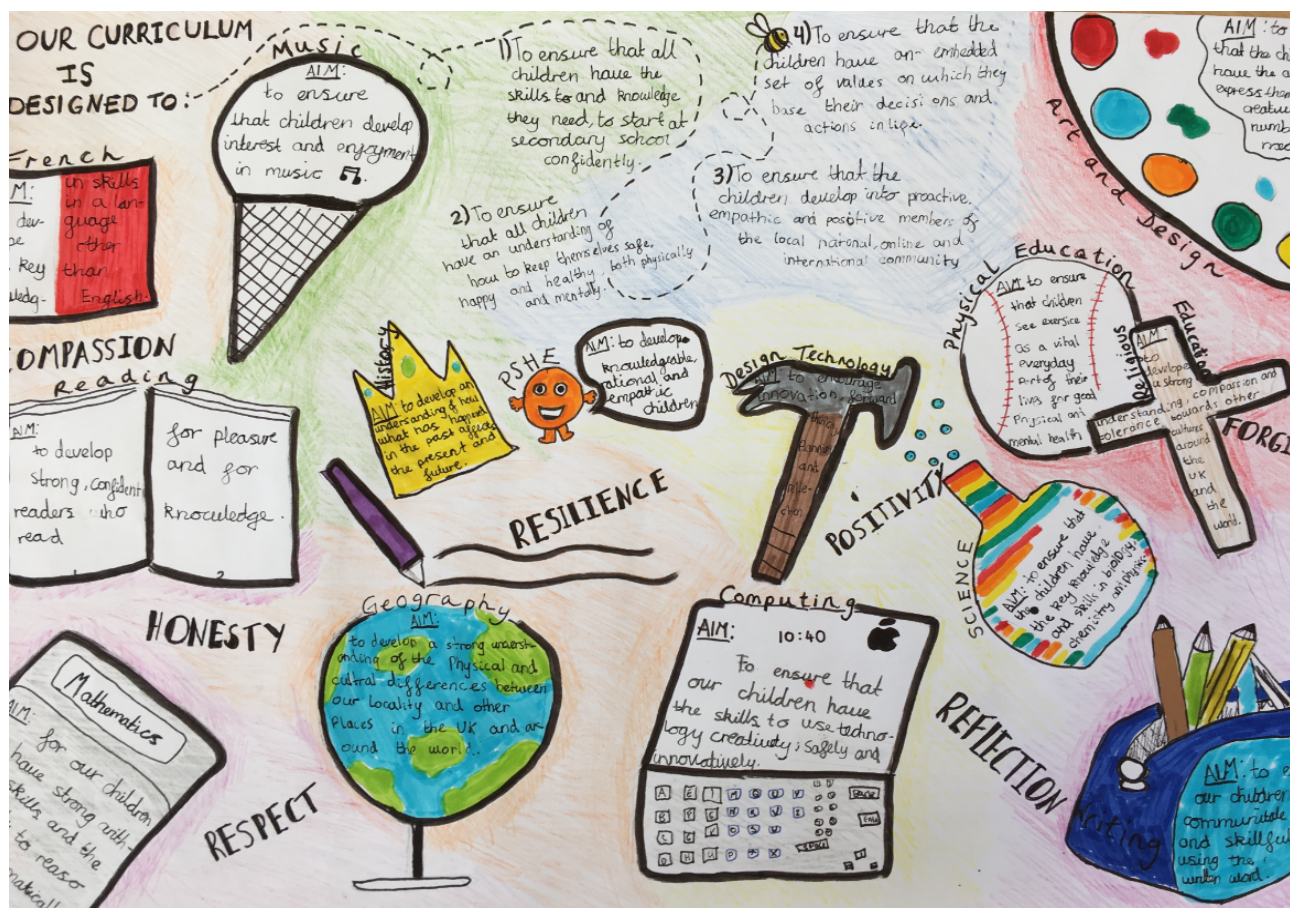 OUR CURRICULUM
IS
DESIGNED TO:
1) To ensure that all
children have the
skills to and knowledge
they need, to start at
secondary school
confidently.
2) To ensure
that all children
have an understanding of
how to keep themselves safe,
happy and healthy, both physically
and mentally.
3) To ensure that the
children develop into proactive,
empathic and positive members of
the local national, online and
international community
4) To ensure that the
children have an embedded
set of values on which they
base their decisions and
actions in life.
Music
AIM:
to ensure
that children develop
interest and enjoyment
in music
Art and Design
AIM: to
that the
have the
express
French
in skills
in a lan-
guage
other
than
English.
dev-
key
COMPASSION
Reading
AIM:
to develop
strong, confident
readers who
read
for pleasure
and for
knowledge.
1
2
History
AIM: to develop an
understanding of how
what has happned
in the past affects
the present and
future.
PSHE
AIM: to develop
knowledgeable,
rational, and
empathic
children
Design Technology
AIM: to encourage
innovation, forward
and
Physical Education
AIM: to ensure
that children
see exersice
as a vital
everyday
Part of their
lives for good
Physical and
mental health
Religious Education
AIM:
to
develope
a strong
understanding, compassion and
tolerance towards other
cultures
around
the
UK
and
the
world.
RESILIENCE
POSITIVITY
SCIENCE
AIM: to ensure that
the children have
the key knowledge
and skills in biology,
chemistry and physics.
HONESTY
Geography
AIM:
to develop a strong underst-
anding of the Physical and
cultral differences between
our locality and other
Places in the UK and ar-
ound the world.
Computing
AIM:
10:40
To ensure that
our children have
the skills to use techno-
logy creatively, safely and
innovatively.
REFLECTION
Mathematics
AIM:
for our children
have strong with-
skills and the
to reaso
RESPECT
Writing
AIM: to
our children
and
using the
word.